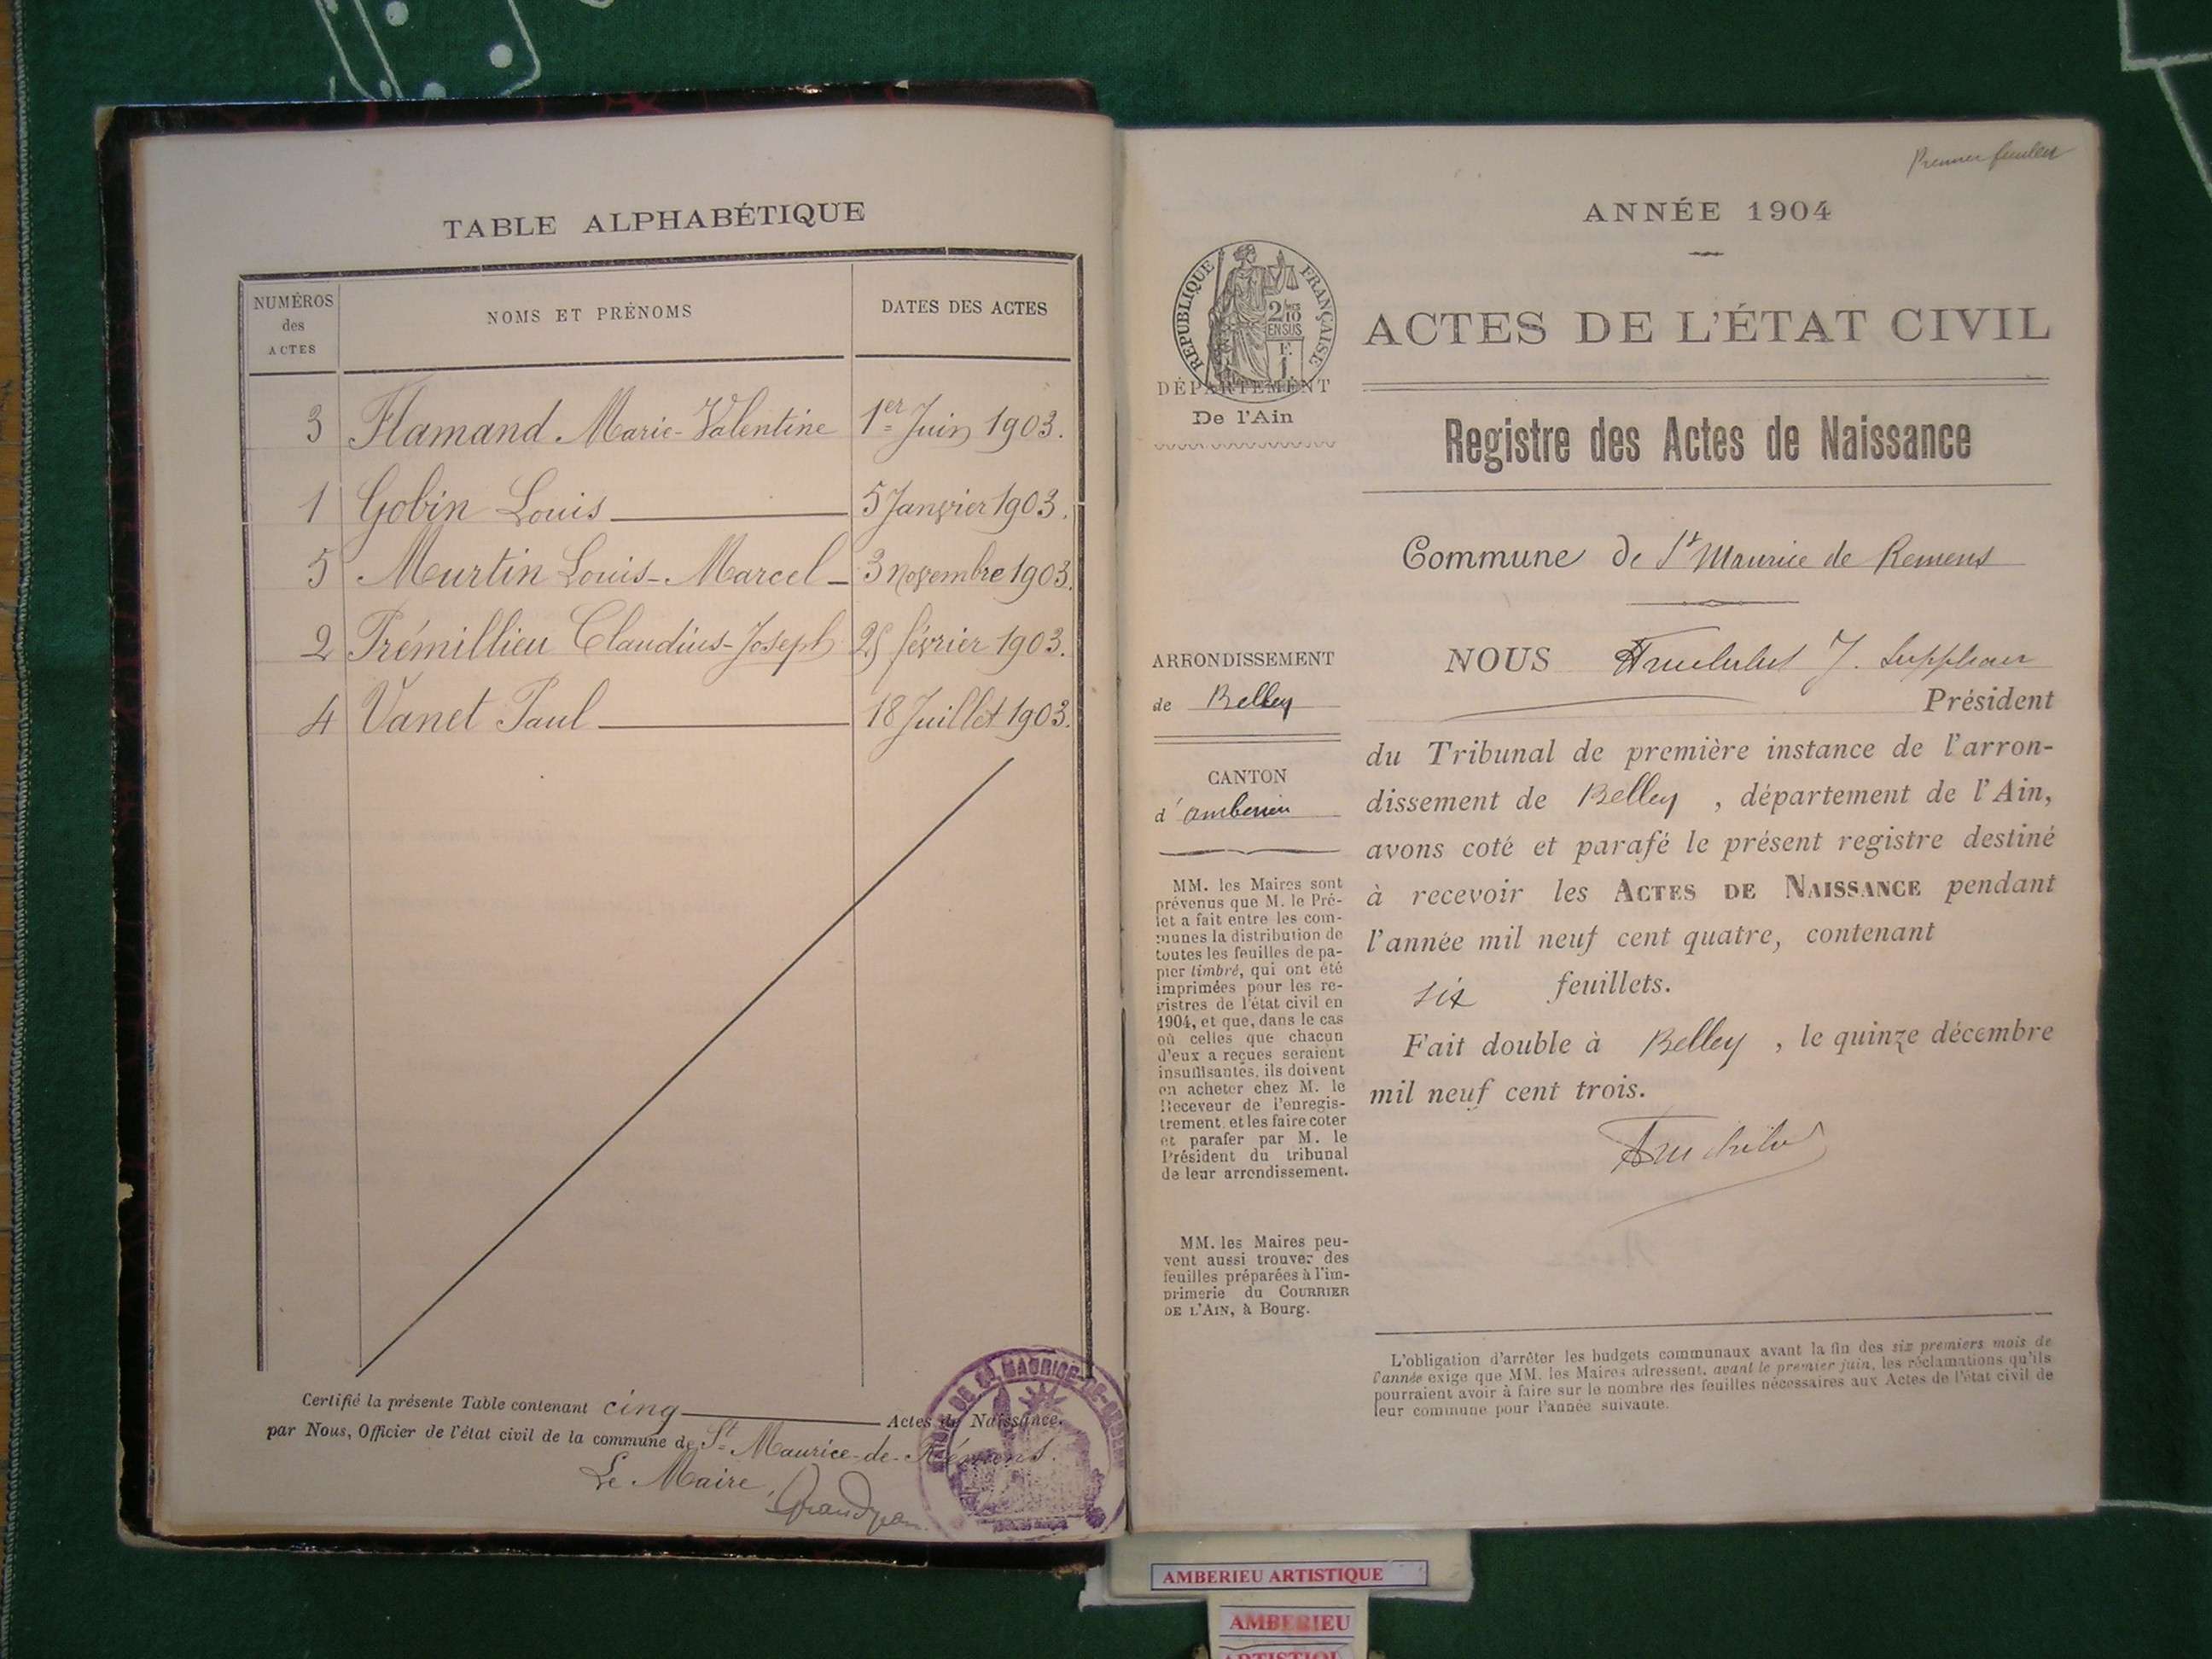 TABLE ALPHABÉTIQUE
NUMÉROS des ACTES
NOMS ET PRÉNOMS
DATES DES ACTES
3 Flamand Marie-Valentine 1er Juin 1903.
1 Gobin Louis 5 Janvier 1903.
5 Murtin Louis-Marcel 3 novembre 1903.
2 Trémillieu Claudius-Joseph 25 février 1903.
4 Vanet Paul 18 Juillet 1903.
Certifié la présente Table contenant cinq Actes de Naissance.
par Nous, Officier de l'état civil de la commune de St Maurice-de-Rémens.
Le Maire,
Grandjean
Premier feuillet
ANNÉE 1904
RÉPUBLIQUE FRANÇAISE
2/10
EN SUS
ACTES DE L'ÉTAT CIVIL
DÉPARTEMENT
De l'Ain
Registre des Actes de Naissance
Commune de St Maurice de Remens
ARRONDISSEMENT
de Belley
CANTON
d'amberieu
MM. les Maires sont
prévenus que M. le Pré-
fet a fait entre les com-
munes la distribution de
toutes les feuilles de pa-
pier timbré, qui ont été
imprimées pour les re-
gistres de l'état civil en
1904, et que, dans le cas
où celles que chacun
d'eux a reçues seraient
insuffisantes, ils doivent
en acheter chez M. le
Receveur de l'enregis-
trement, et les faire coter
et parafer par M. le
Président du tribunal
de leur arrondissement.
MM. les Maires peu-
vent aussi trouver des
feuilles préparées à l'im-
primerie du COURRIER
DE L'AIN, à Bourg.
NOUS J. Suppléant
Président
du Tribunal de première instance de l'arron-
dissement de Belley, département de l'Ain,
avons coté et parafé le présent registre destiné
à recevoir les ACTES DE NAISSANCE pendant
l'année mil neuf cent quatre, contenant
six feuillets.
Fait double à Belley, le quinze décembre
mil neuf cent trois.
L'obligation d'arrêter les budgets communaux avant la fin des six premiers mois de
l'année exige que MM. les Maires adressent, avant le premier juin, les réclamations qu'ils
pourraient avoir à faire sur le nombre des feuilles nécessaires aux Actes de l'état civil de
leur commune pour l'année suivante.
AMBERIEU ARTISTIQUE
AMBERIEU
ARTISTIQUE